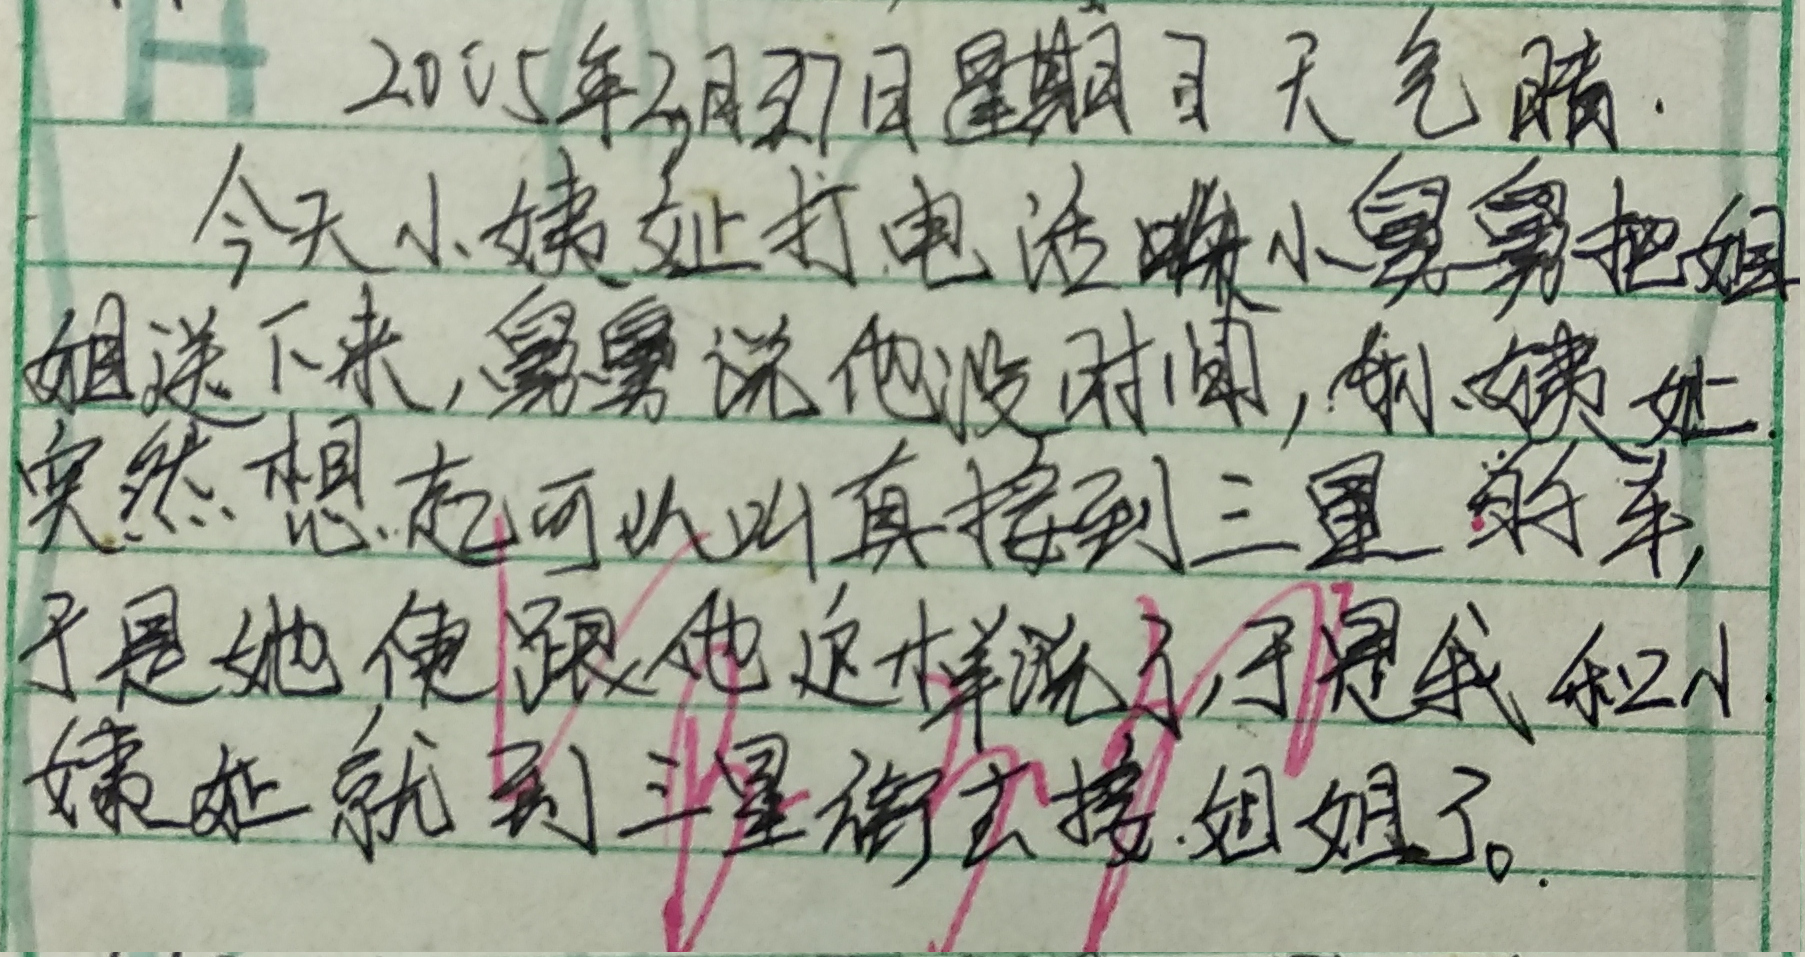 2005年2月27日星期日 天气晴.
今天小姨娅打电话唤小舅舅把姐
姐送下来,舅舅说他没时间,小姨娅
突然想起可以叫直接到三星的车,
于是她便跟他这样说了,于是我和小
姨娅就到三星街去接姐姐了。